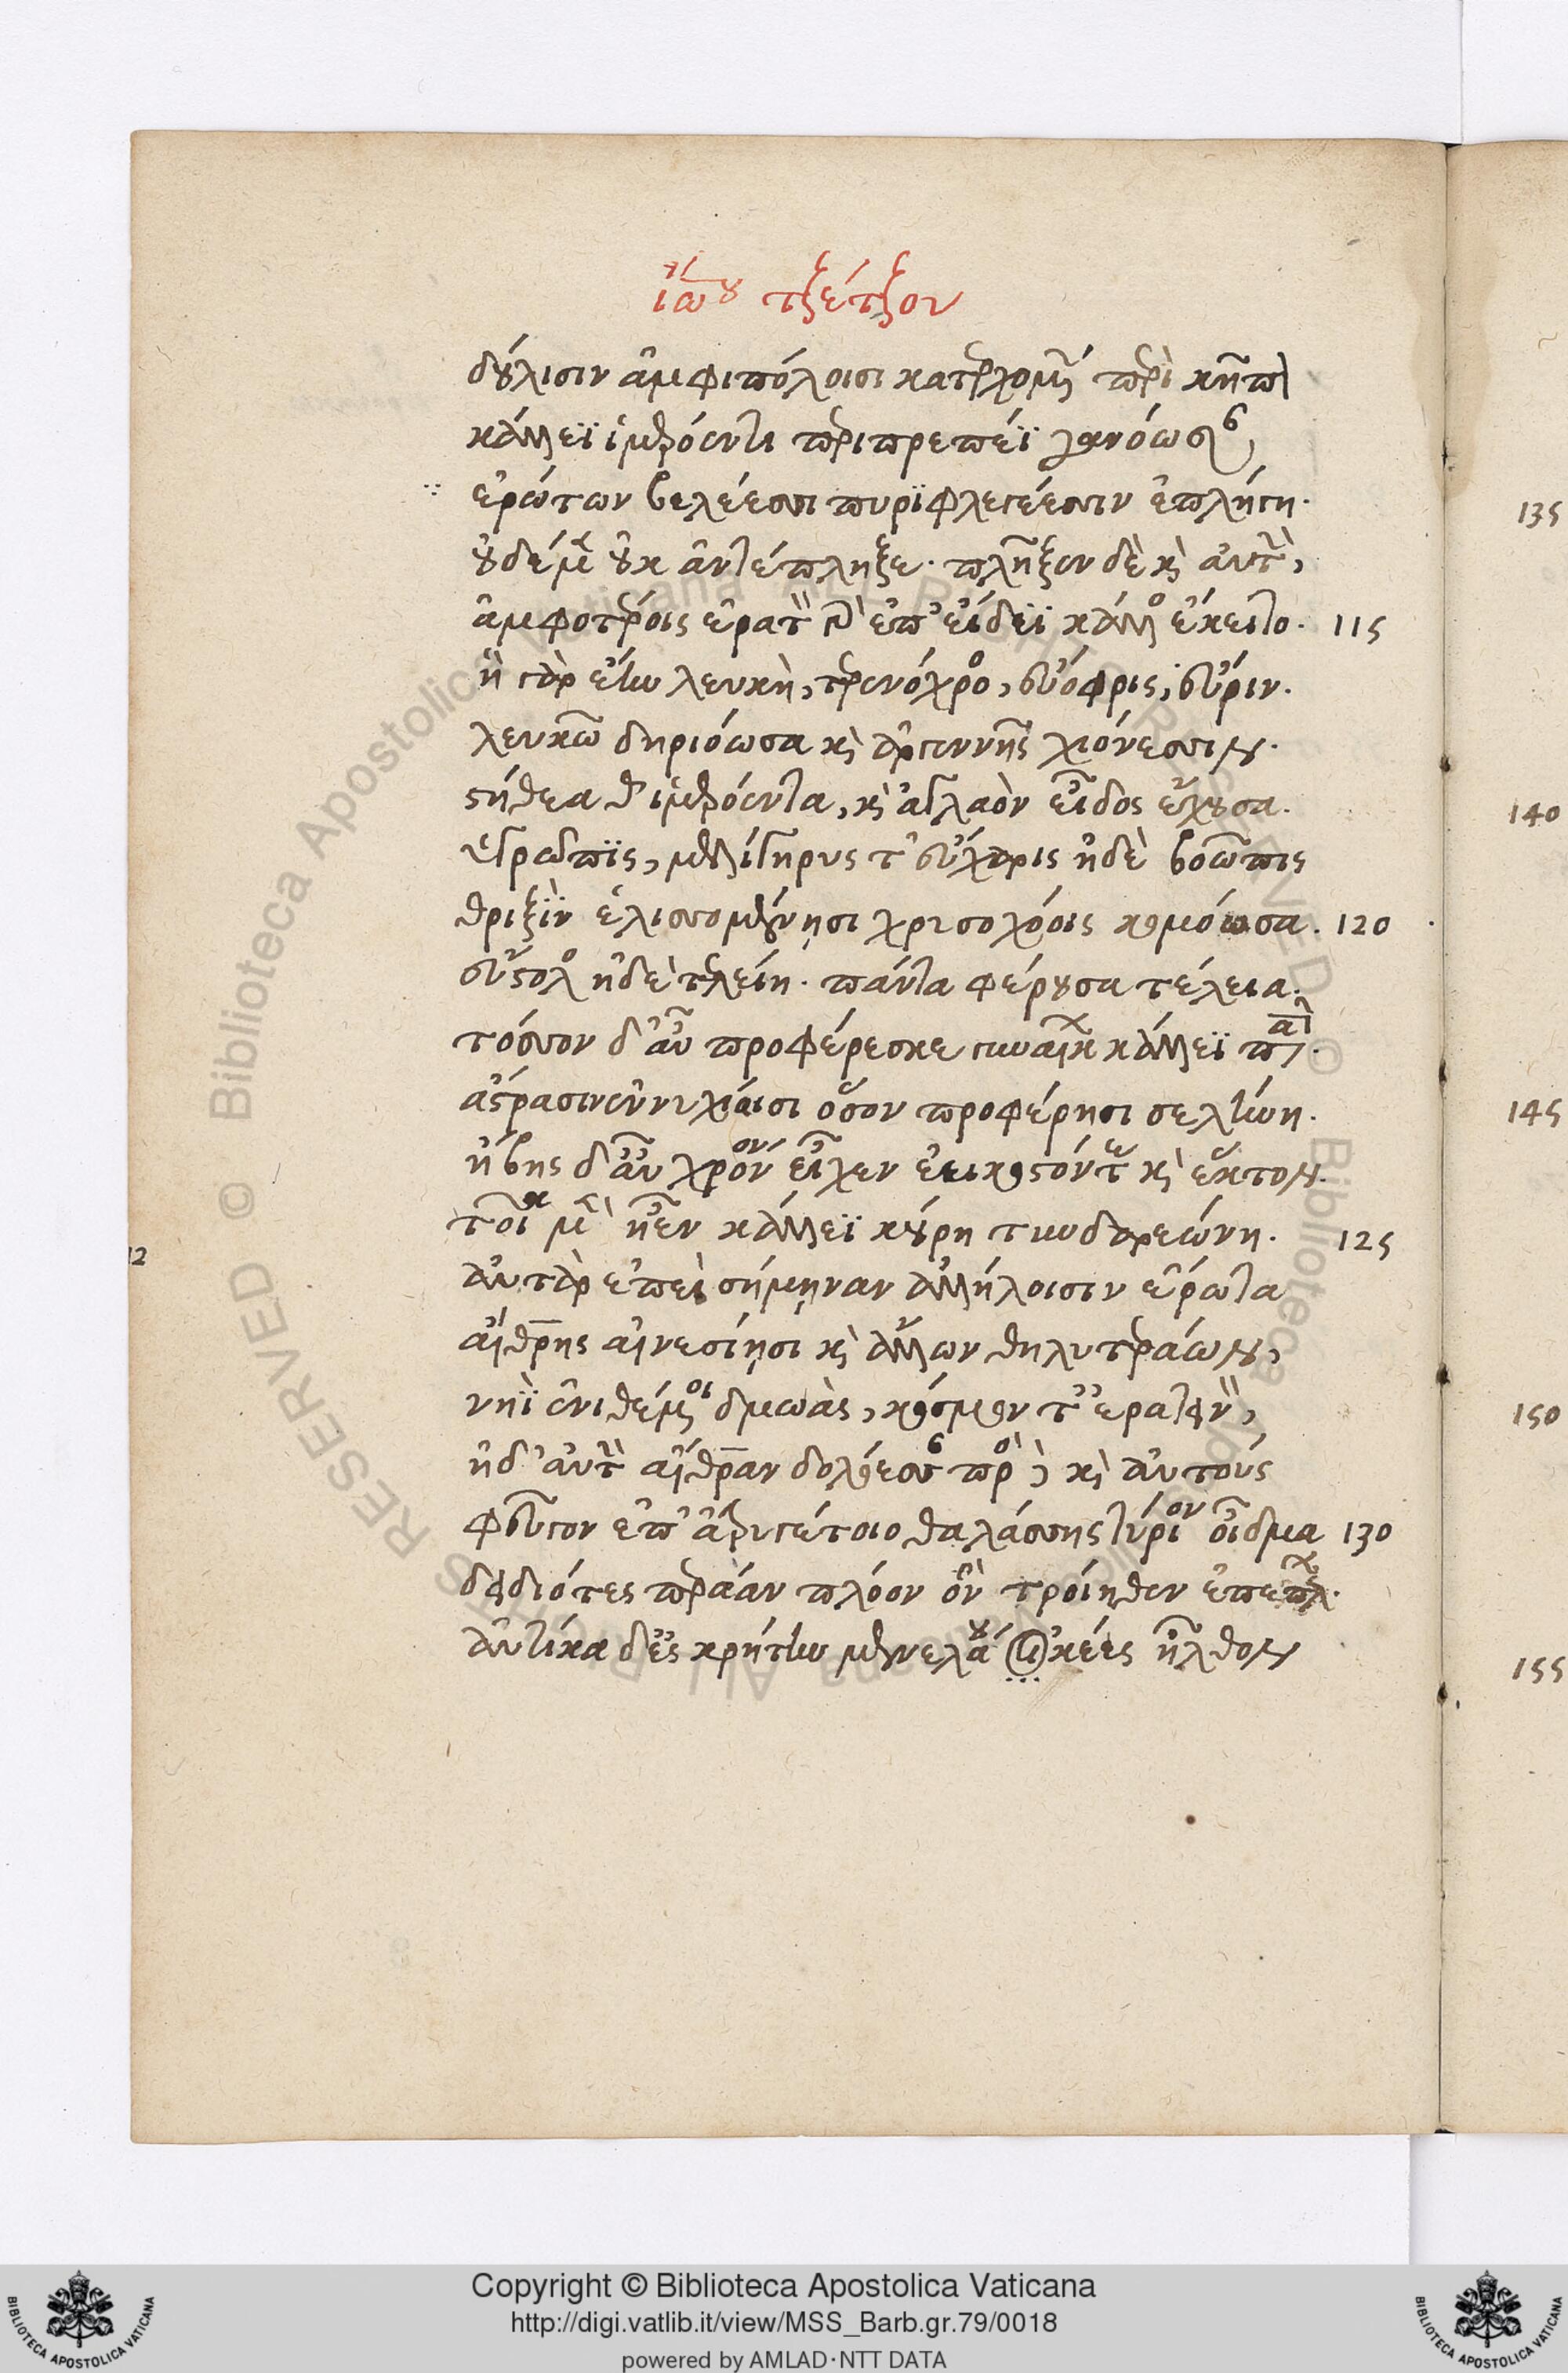 ἰωου τζέτζου
δούλισιν ἀμφιπόλοισι κατερχομένη περὶ κήπους
κάλλεϊ ἱμερόεντι περιπρεπέϊ γανόωσαν
ἐρώτων βελέεσσι πυριφλεγέεσσιν ἐπλήγη.
οὐδὲ μὲν οὐκ ἀντέπληξε. πλῆξεν δὲ καὶ αὐτὴν,
ἀμφοτέροις ἐρατὸν γὰρ ἐπ' εἴδεϊ κάλλος ἔκειτο. 115
ἣ γὰρ ἔην λευκὴ, τερενόχροος, εὔοφρις, εὔριν.
λευκῶ δηριόωσα καὶ ἀργεννῇς χιόνεσσιν.
στήθεα θ' ἱμερόεντα, καὶ ἀγλαὸν εἶδος ἔχουσα.
ὑγρωπϊς, μελίγηρυς τ' εὔχαρις ἠδὲ βοῶπις
θριξῒν ἑλισσομένῃσι χρυσοχόοις κομόωσα. 120
εὔστολος ἠδὲ τελείη. πάντα φέρουσα τέλεια.
τόσσον δ' αὖ προφέρεσκε γυναικῶν κάλλεϊ πασῶν.
ἄστρασιν ἐννυχίαισι ὅσον προφέρησι σελήνη.
ἥβης δ' αὖ χρόνον εἶχεν ἐεικοστόν τε καὶ ἕκτον.
τοία μὲν ἦεν κάλλεϊ κούρη τυνδαρεώνη. 125
αὐτὰρ ἐπεὶ σήμηναν ἀλλήλοισιν ἔρωτα
αἴθρης αἰνεσίῃσι καὶ ἄλλων θηλυτεράων,
νηῒ ἐνιθέμενοι δμωὰς, κόσμον τ' ἐρατεινὸν,
ἠδ' αὐτὴν αἴθραν δολόεσσαν πρὸς καὶ αὐτούς
φεῦγον ἐπ' ἀτρυγέτοιο θαλάσσης τύριον οἶδμα 130
δειδιότες περάαν πλόον ὃν τροίηθεν ἐπέπλων.
αὐτίκα δ' ἐς κρήτην μενελάου ὠκέες ἦλθον
135
140
145
150
155
12
Copyright © Biblioteca Apostolica Vaticana
http://digi.vatlib.it/view/MSS_Barb.gr.79/0018
powered by AMLAD·NTT DATA